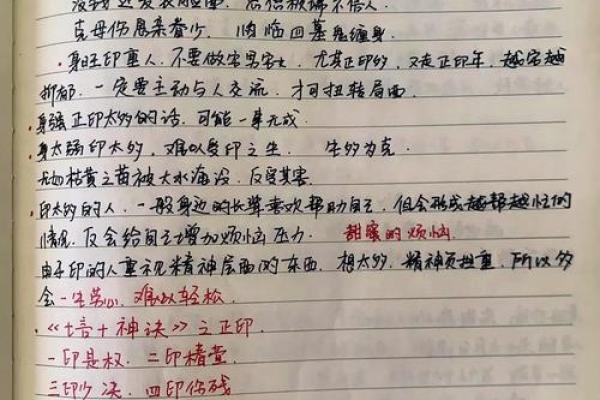 克母伤尾亲眷少. 时临四墓鬼缠身.
·身旺印重人. 不要做宅男宅女, 尤其正印的, 又走正印年, 越宅越
抑郁. 一定要主动与人交流. 才可扭转局面.
·身强正印太多的话. 可能一事无成.
·身太弱印太多, 难以受印之生. 生多为克.
尤如枯黄之苗被大水淹没, 反受其害.
·印太多的人. 一般身边的长辈喜欢帮助自己, 但会形成越帮越忙的
情况, 反会给自己增加烦恼压力. 甜蜜的烦恼
由于印的人重视精神层面的东西, 想太多, 精神负担重, 所以多
会一生劳心, 难以轻松.
·《十神诀》之正印.
一印是权. 二印精萱
三印少决. 四印伤残